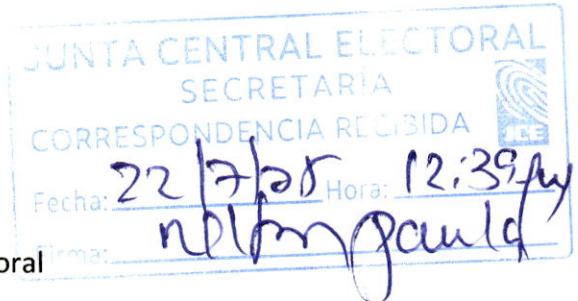 JUNTA CENTRAL ELECTORAL
SECRETARÍA
CORRESPONDENCIA RECIBIDA
JCE
Fecha: 22/7/25 Hora: 12:39 pm
Firma: Paula
oral